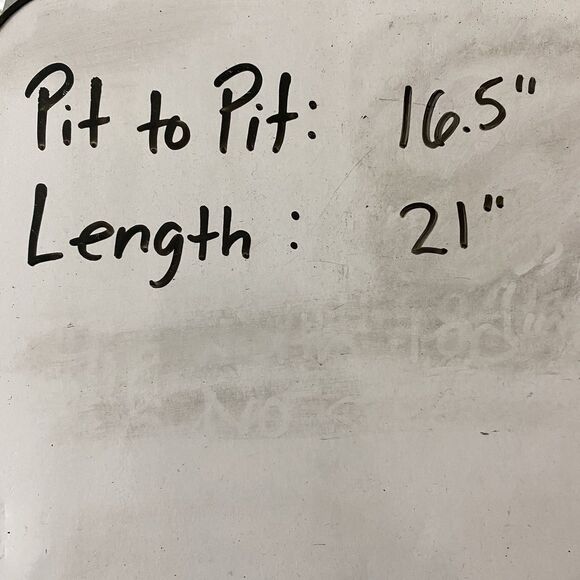 Pit to Pit: 16.5"
Length: 21"